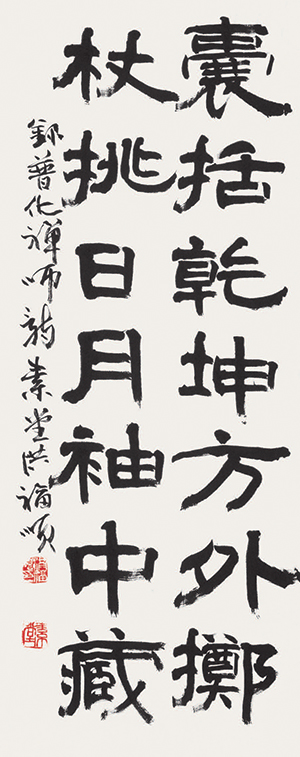 囊括乾坤方外擲
杖挑日月袖中藏
錄普化禪師詩 素堂洪福順